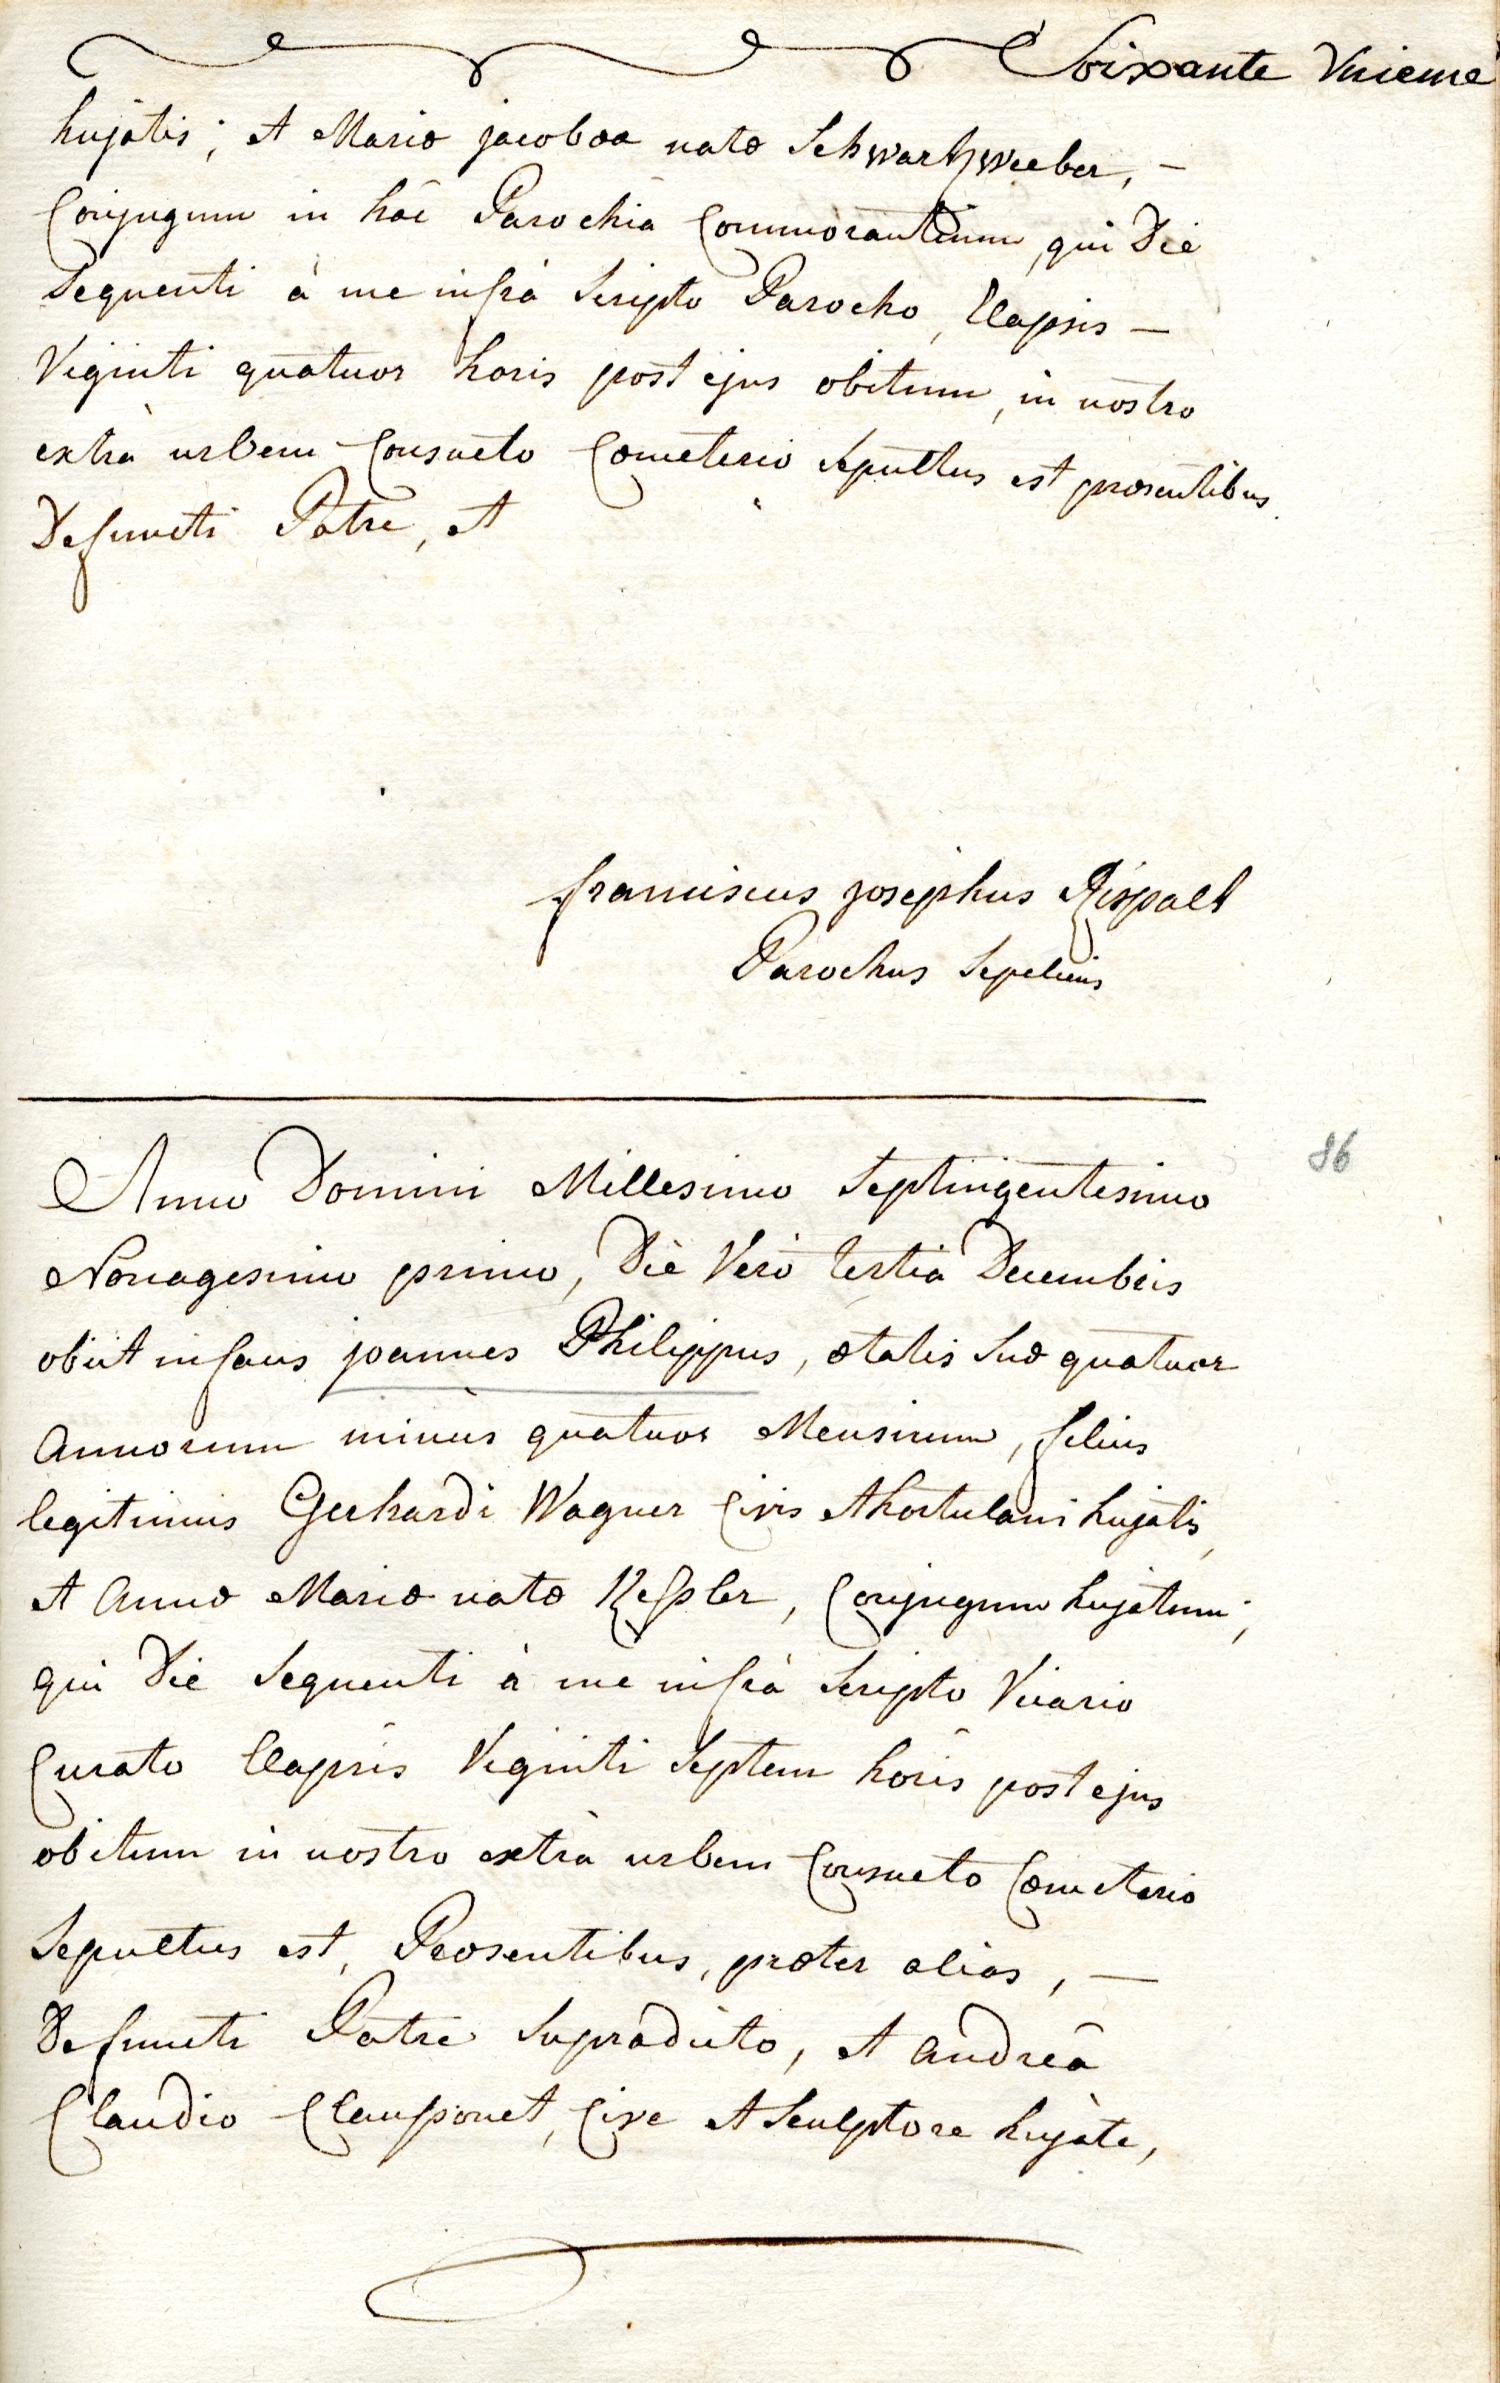 Soixante Unieme
hujatis; et Mariæ jacobææ natæ Schwartzweeber, –
Conjugum in hâc Parochiâ Commorantium, qui Die
Sequenti à me infrà Scripto Parocho, Elapsis –
Viginti quatuor horis post ejus obitum, in nostro
extrà urbem Consueto Cœmeterio Sepultus est præsentibus
Defuncti Patre, et
franciscus josephus Rispalt
Parochus Sepeliens
86
Anno Domini Millesimo Septingentesimo
Nonagesimo primo, Diè Verò tertiâ Decembris
obiit infans joannes Philippus, ætatis Suæ quatuor
annorum minùs quatuor Mensium, filius
legitimus Gerhardi Wagner Civis et hortulani hujatis,
et annæ Mariæ natæ Keßler, Conjugum hujatum;
qui Die Sequenti à me infrà Scripto Vicario
Curato Elapsis Viginti Septem horis post ejus
obitum in nostro extrà urbem Consueto Cœmeterio
Sepultus est, Præsentibus, præter alios, –
Defuncti Patre Supradicto, et andreâ
Claudio Clausonet, Cive et Sculptore hujate,